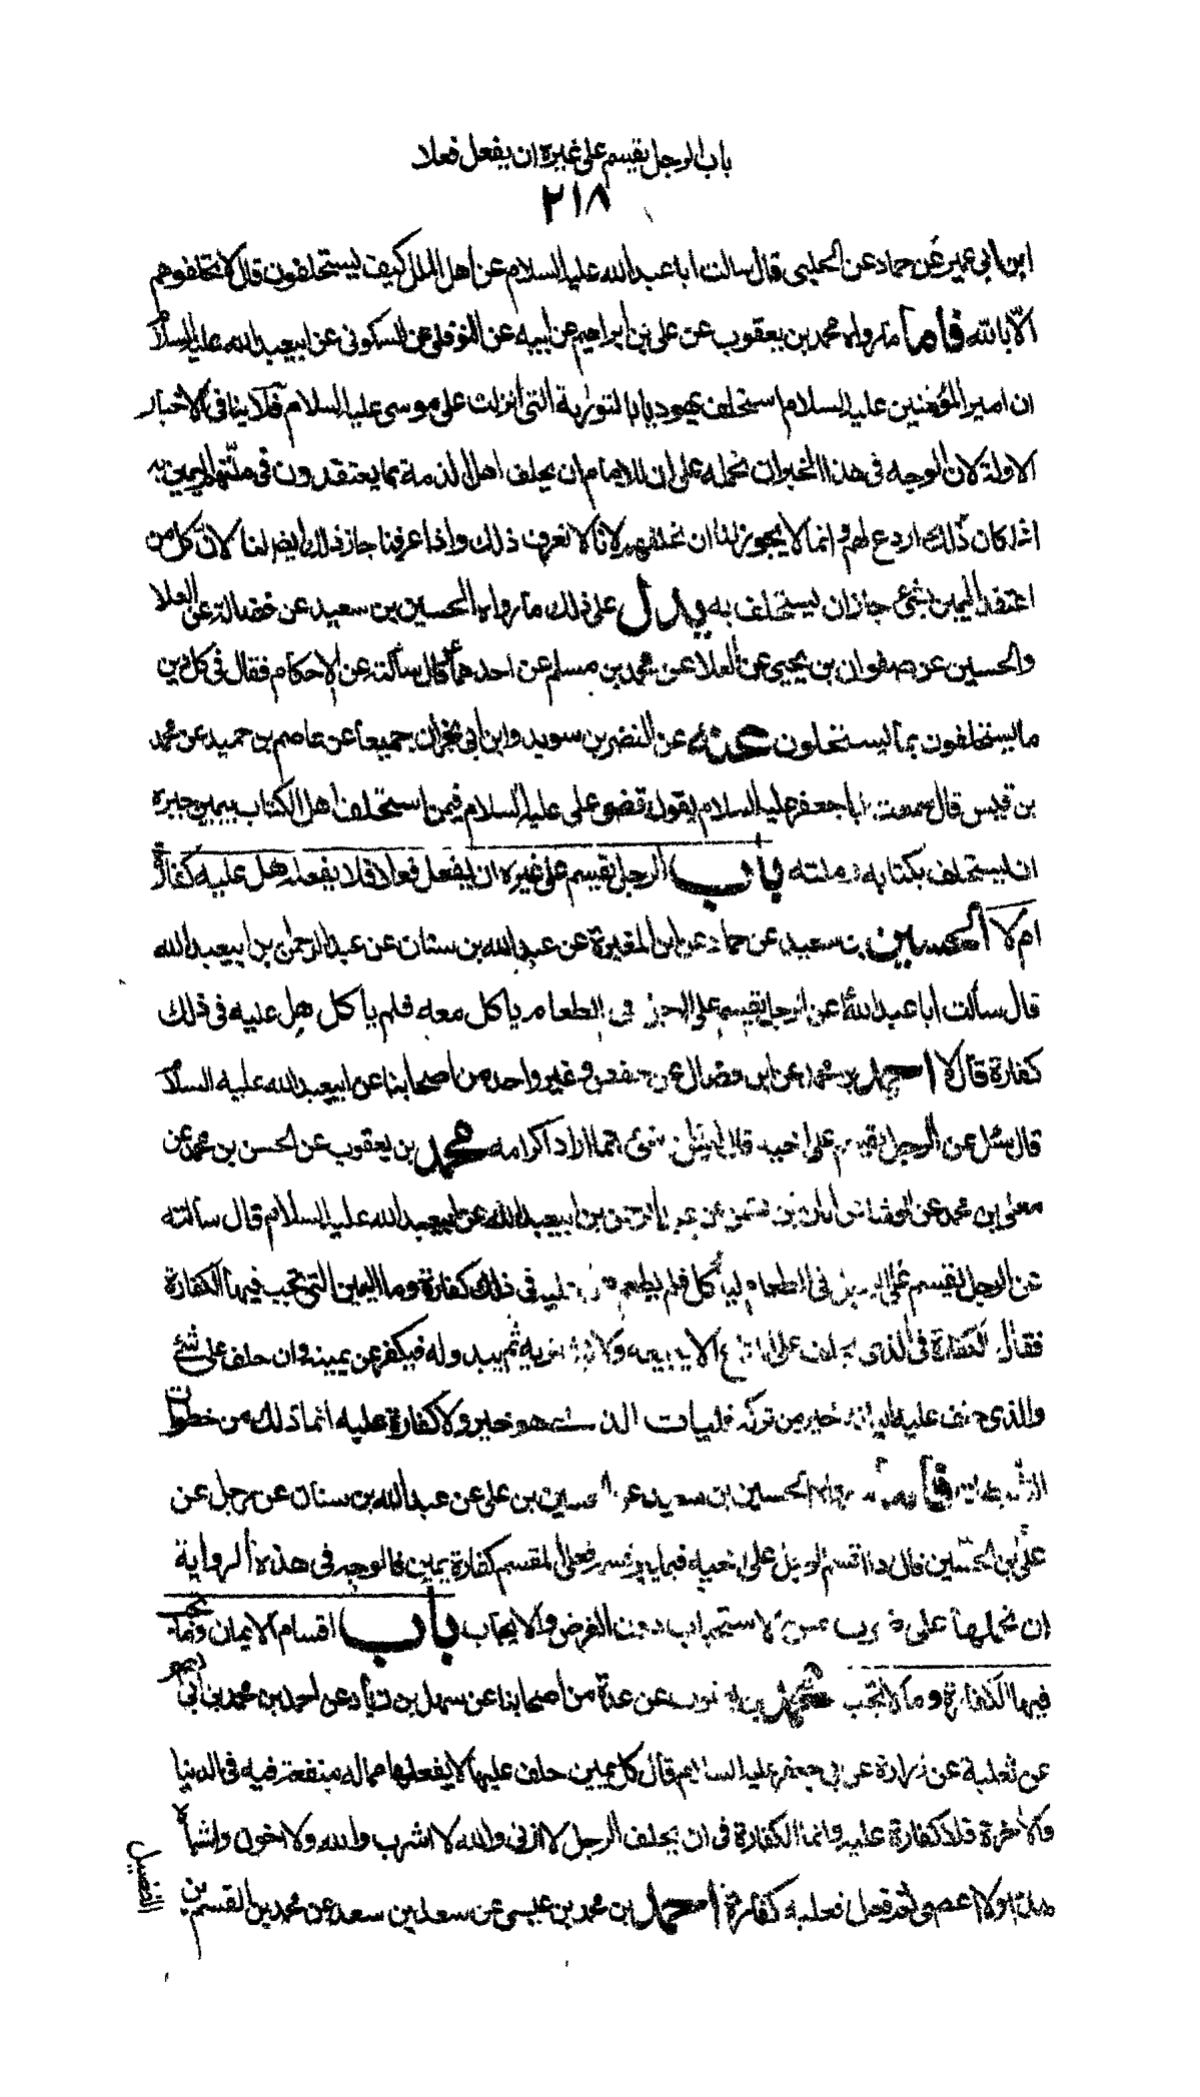 باب الرجل يقسم على غيره ان يفعل فعلا
٢١٨
ابن ابى عمير عن حماد عن الحلبى قال سالت ابا عبد الله عليه السلام عن اهل الملل كيف يستحلفون قال لا تحلفوهم
الّا بالله فاما ما رواه محمد بن يعقوب عن على بن ابراهيم عن ابيه عن النوفلى عن السكونى عن ابيعبد الله عليه السلام
ان امير المؤمنين عليه السلام استحلف يهوديا بالتورية التى انزلت على موسى عليه السلام فلا ينافى الاخبار
الاولة لان الوجه فى هذا الخبر ان نحمله على ان للامام ان يحلف اهل الذمة بما يعتقدون فى ملتهم اليمين به
اذا كان ذلك اردع لهم وانما لا يجوز لنا ان نحلفهم لانا لا نعرف ذلك واذا عرفنا جاز ذلك ايضا لنا لان كل من
اعتقد اليمين بشئ جاز ان يستحلف به يدل على ذلك ما رواه الحسين بن سعيد عن فضالة عن العلا
والحسين عن صفوان بن يحيى عن العلا عن محمد بن مسلم عن احدهما قال سألته عن الاحكام فقال فى كل دين
ما يستحلفون بما يستحلون عنه عن النضر بن سويد وابن ابى نجران جميعا عن عاصم بن حميد عن محمد
بن قيس قال سمعت ابا جعفر عليه السلام يقول قضى على عليه السلام فيمن استحلف اهل الكتاب بيمين صبره
ان يستحلف بكتابه وملته باب الرجل يقسم على غيره ان يفعل فعلا فلا يفعله هل عليه كفارة
ام لا الحسين بن سعيد عن حماد عن ابن المغيرة عن عبد الله بن سنان عن عبد الرحمن بن ابيعبد الله
قال سألت ابا عبد الله عن الرجل يقسم على الرجل فى الطعام ياكل معه فلم ياكل هل عليه فى ذلك
كفارة قال لا احمد بن محمد عن ابن فضال عن حفص وغير واحد من اصحابنا عن ابيعبد الله عليه السلام
قال سئل عن الرجل يقسم على اخيه قال ليس بشئ انما اراد اكرامه محمد بن يعقوب عن الحسن بن محمد عن
معلى بن محمد عن الوشا عن ابان بن عثمن عن عبد الرحمن بن ابيعبد الله عن ابيعبد الله عليه السلام قال سالته
عن الرجل يقسم على الرجل فى الطعام لياكل فلم يطعم عليه فى ذلك كفارة وما اليمين التى تجب فيها الكفارة
فقال الكفارة فى الذى يحلف على المتاع الا يبيعه ولا يشتريه ثم يبدو له فيكفر عن يمينه وان حلف على شئ
والذى حلف عليه اتيانه خير من تركه فليات الذى هو خير ولا كفارة عليه انما ذلك من خطوات
الشيطان فاما ما رواه الحسين بن سعيد عن الحسين بن على عن عبد الله بن سنان عن رجل عن
على بن الحسين قال اذا اقسم الرجل على اخيه فلم يبر قسمه فعلى المقسم كفارة يمين فالوجه فى هذه الرواية
ان نحملها على ضرب من الاستحباب دون الفرض والايجاب باب اقسام الايمان وما تجب
فيها الكفارة وما لا تجب محمد بن يعقوب عن عدة من اصحابنا عن سهل بن زياد عن احمد بن محمد بن ابى نصر
عن ثعلبة عن زرارة عن ابى جعفر عليه السلام قال كل يمين حلف عليها لا يفعلها مما له منفعة فيه فى الدنيا
والاخرة فلا كفارة عليه وانما الكفارة فى ان يحلف الرجل لا ازنى والله لا اشرب والله ولا اخون واشباه
هذا ولا اعصى ثم فعل فعليه كفارة احمد بن محمد بن عيسى عن سعد بن سعد عن محمد بن القسم بن
الفضيل